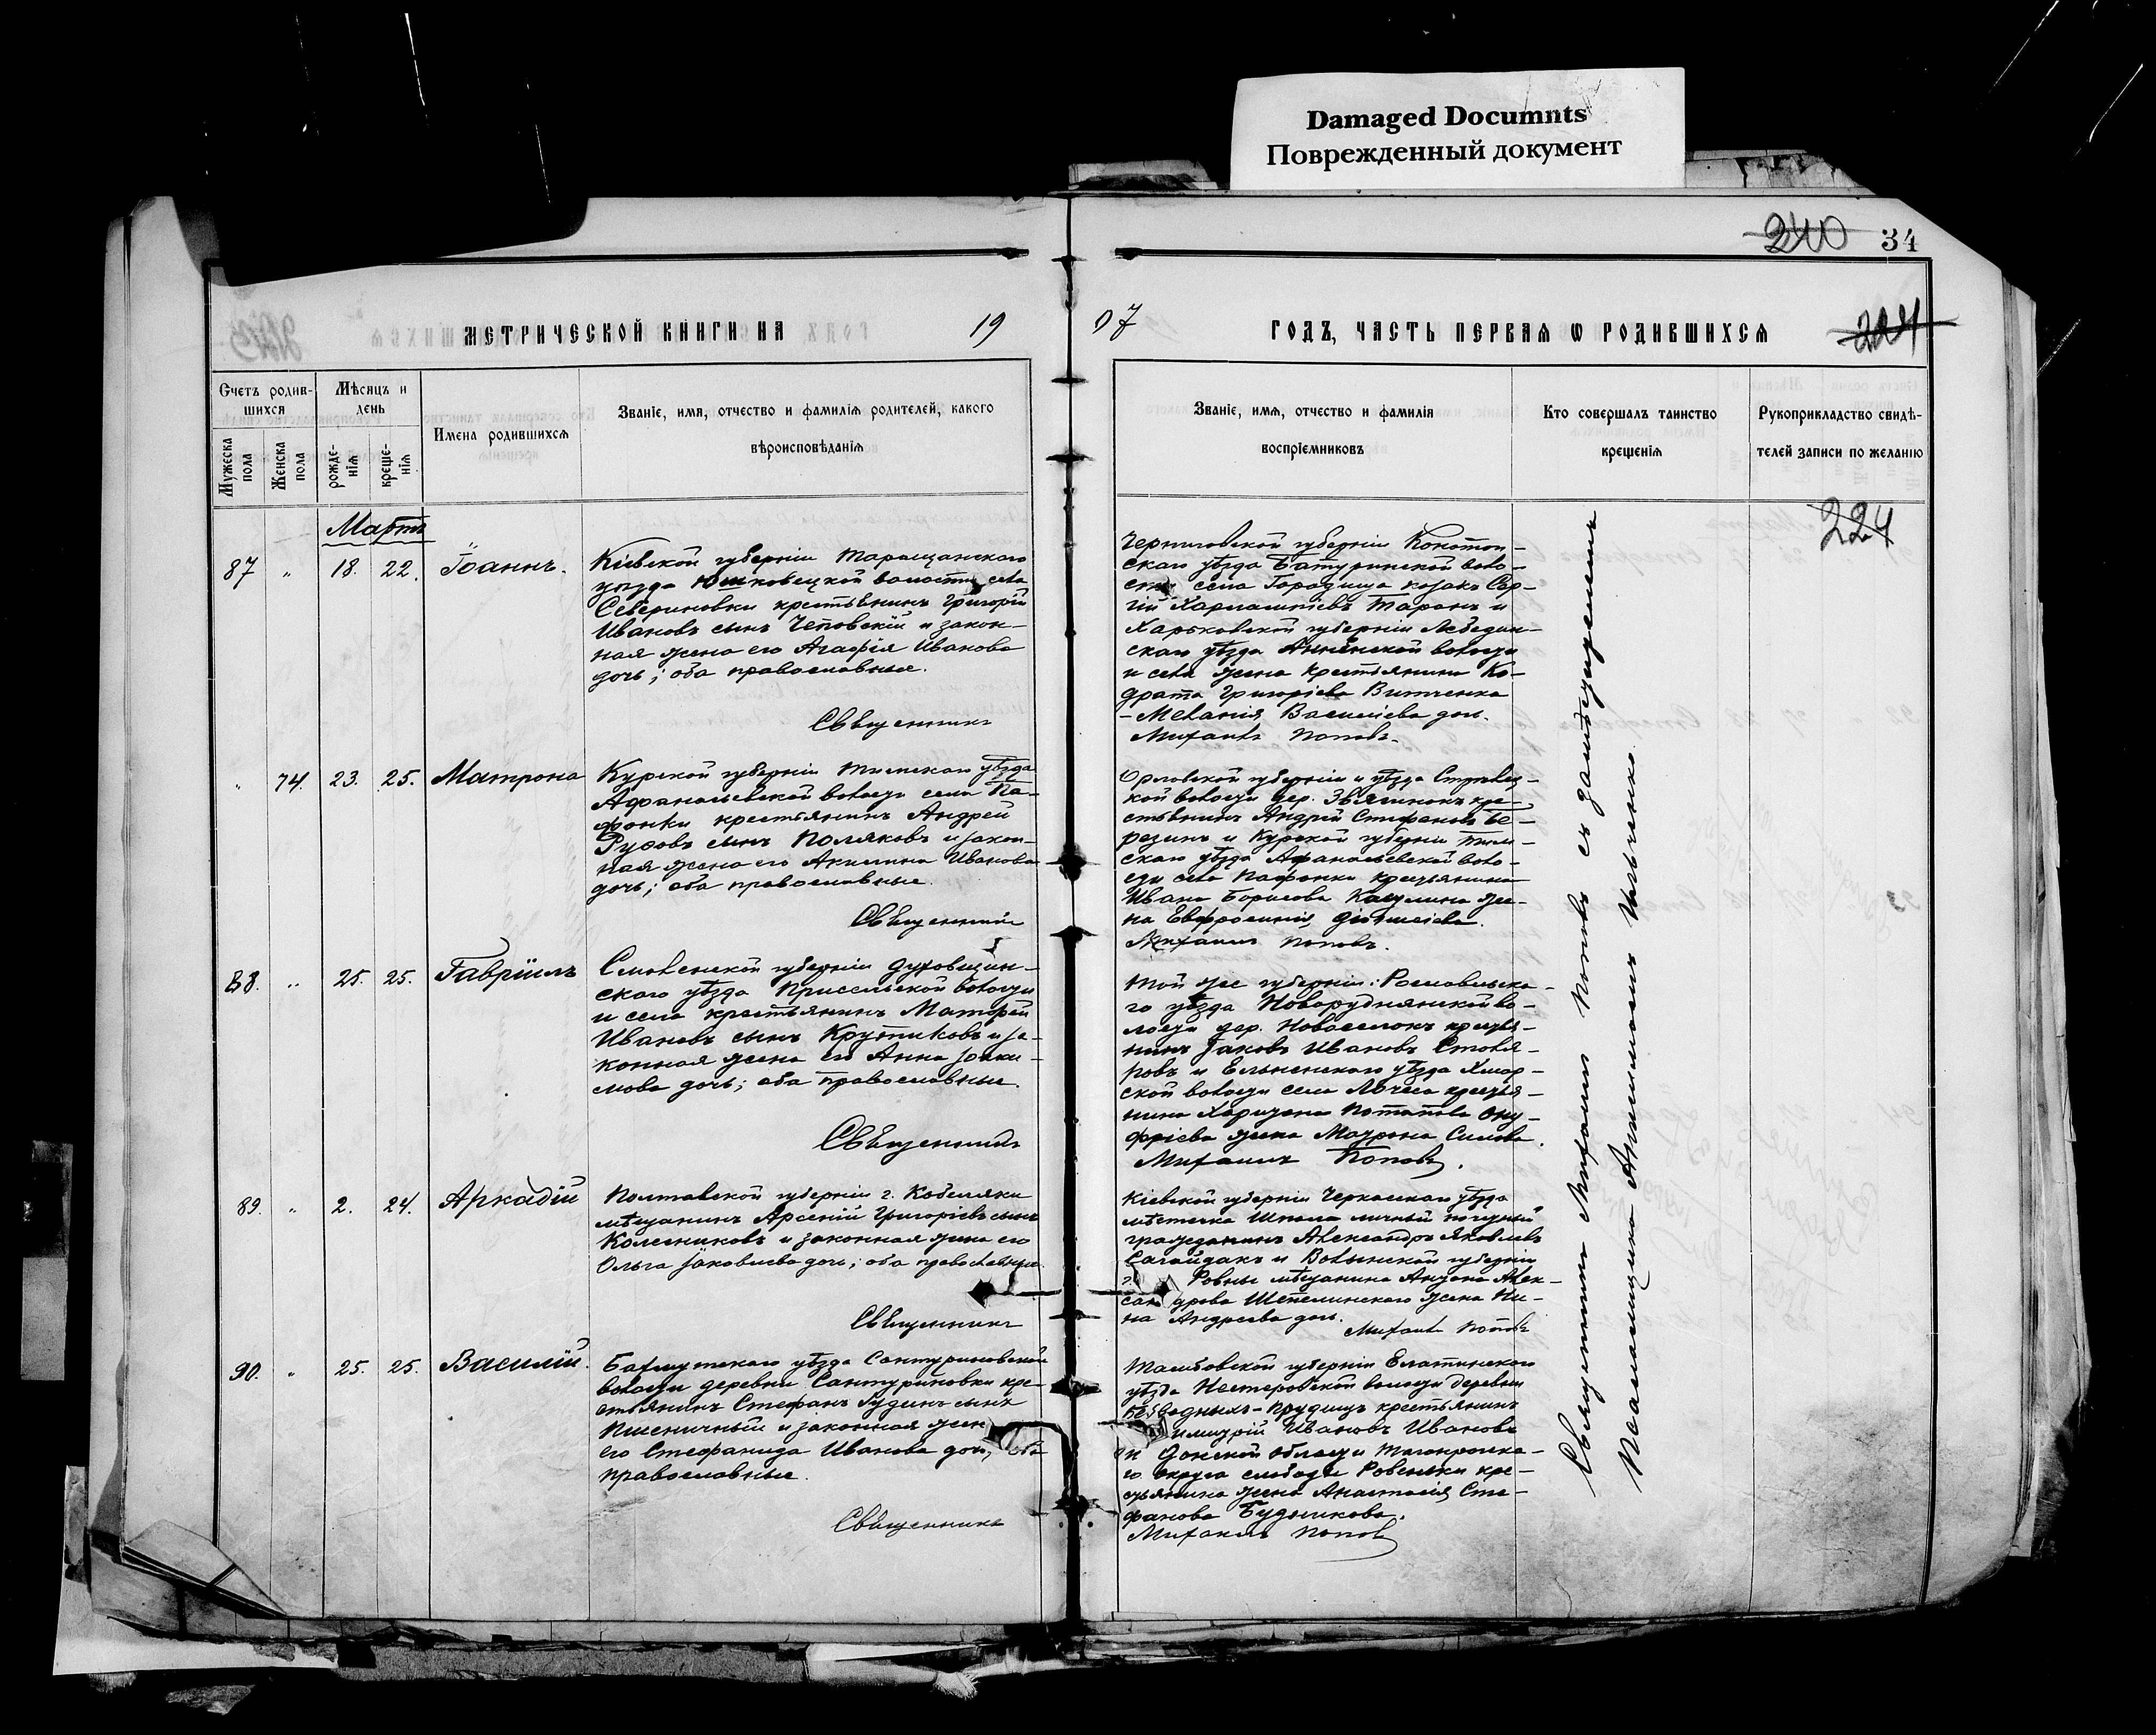 Damaged Documnts
Поврежденный документ
240 34
МЕТРИЧЕСКОЙ КНИГИ НА 19
07 ГОДЪ, ЧАСТЬ ПЕРВАЯ Ѡ РОДИВШИХСЯ
224
Счетъ родив-
шихся
Мужеска пола
Женска пола
Мѣсяцъ и
день
рожде-
нія
креще-
нія
Имена родившихся
Званіе, имя, отчество и фамилія родителей, какого
вѣроисповѣданія
Званіе, имя, отчество и фамилія
воспріемниковъ
Кто совершалъ таинство
крещенія
Рукоприкладство свидѣ-
телей записи по желанію
224
Мартъ
87 " 18. 22. Іоаннъ.
Кіевской губерніи Таращанскаго
уѣзда Юшковецкой волости села
Севериновки крестьянинъ Григорій
Ивановъ сынъ Чеповскій и закон-
ная жена его Агафія Иванова
дочь; оба православные.
Священникъ
Черниговской губерніи Конотоп-
скаго уѣзда Батуринской воло-
сти села Городища козакъ Сер-
гій Харлампіевъ Таранъ и
Харьковской губерніи Лебедин-
скаго уѣзда Аннинской волости
и села жена крестьянина Ко-
драта Григоріева Витченка
- Меланія Василіева дочь.
Михаилъ Поповъ.
" 74. 23. 25. Матрона
Курской губерніи Тимскаго уѣзда
Афанасьевской волости села Па-
фонки крестьянинъ Андрей
Руфовъ сынъ Поляковъ и закон-
ная жена его Акилина Иванова
дочь; оба православные.
Священникъ
Орловской губерніи и уѣзда Стрѣлец-
кой волости дер. Звягинокъ кре-
стьянинъ Андрій Стефановъ Бе-
резинъ и Курской губерніи Тим-
скаго уѣзда Афанасьевской воло-
сти села Пафонки крестьянина
Ивана Борисова жe-
на Евфросинія
Михаилъ Поповъ.
88. " 25. 25. Гавріилъ
Смоленской губерніи Духовщин-
скаго уѣзда Присельской волости
и села крестьянинъ Матфей
Ивановъ сынъ Крутиковъ и за-
конная жена его Анна Іоаки-
мова дочь; оба православные.
Священникъ
Той же губерніи: Рославльска-
го уѣзда Новоруднянской во-
лости дер. Новоселокъ крестья-
нинъ Іаковъ Ивановъ Столя-
ровъ и Ельнинскаго уѣзда Хмар-
ской волости села крестья-
нина Харитона Потапова Ону-
фріева жена Матрона Силова.
Михаилъ Поповъ.
89. " 2. 24. Аркадій
Полтавской губерніи г. Кобеляки
мѣщанинъ Арсеній Григоріевъ сынъ
Колесниковъ и законная жена его
Ольга Іаковлева дочь; оба православные.
Священникъ
Кіевской губерніи Черкасскаго уѣзда
мѣстечка Шпола личный почетный
гражданинъ Александръ Яковлевъ
Сагайдакъ и Волынской губерніи
г. Ровны мѣщанина Антона Алек-
сандрова Шепелинскаго жена Ни-
на Андреева дочь.
Михаилъ Поповъ
90. " 25. 25. Василій.
Бахмутскаго уѣзда Сантуриновской
волости деревни Сантуриновки кре-
стьянинъ Стефанъ сынъ
Пшеничный и законная жена
его Стефанида Иванова дочь; оба
православные.
Священникъ
Тамбовской губерніи Елатинскаго
уѣзда Нестеровской волости деревни
Безводныхъ-Прудищъ крестьянинъ
имитрій Ивановъ Ивановъ
и Донской области Таганрогска-
го округа слободы Ровеньки кре-
стьянина жена Анастасія Сте-
фанова Будникова.
Михаилъ Поповъ
Священникъ Михаилъ Поповъ съ
Псаломщикомъ Ильченко.